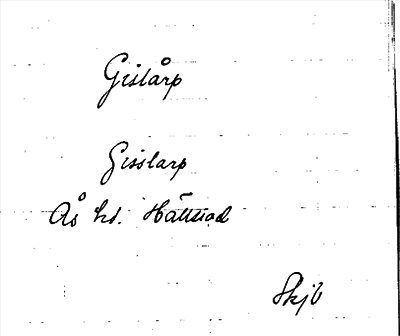 Gislårp
Gisslarp
Ås hd. Hällstad
Skjb